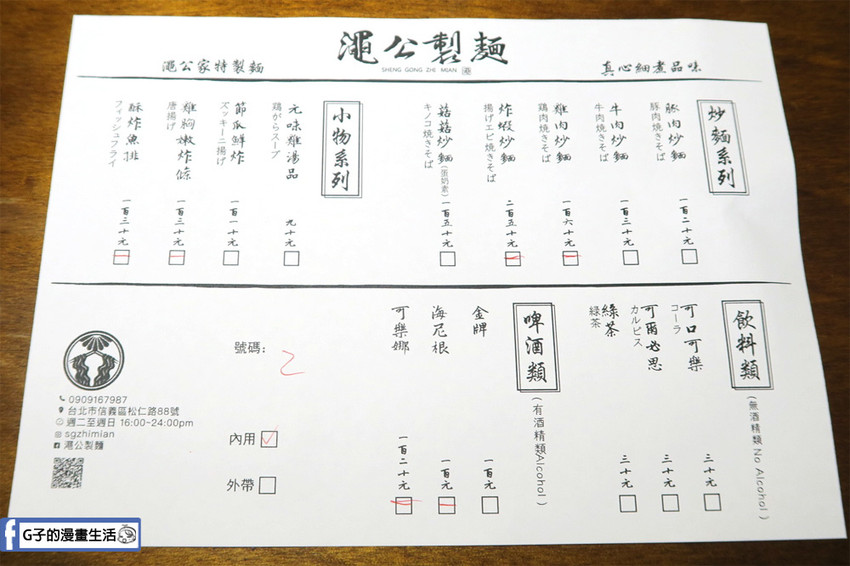 澠公製麵
SHENG GONG ZHI MIAN 港
澠公家特製麵
真心細煮品味
炒麵系列
豚肉炒麵
豚肉焼きそば
一百二十元
牛肉炒麵
牛肉焼きそば
一百三十元
雞肉炒麵
鶏肉焼きそば
一百六十元
炸蝦炒麵
揚げエビ焼きそば
二百五十元
菇菇炒麵(蛋奶素)
キノコ焼きそば
一百五十元
小物系列
元味雞湯品
鶏がらスープ
九十元
節瓜鮮炸
ズッキーニ揚げ
一百一十元
雞胸嫩炸條
唐揚げ
一百三十元
酥炸魚排
フィッシュフライ
一百三十元
飲料類
(無酒精類 No Alcohol)
可口可樂
コーラ
三十元
可爾必思
カルピス
三十元
綠茶
緑茶
三十元
啤酒類
(有酒精類Alcohol)
金牌
一百元
海尼根
一百元
可樂娜
一百二十元
號碼:
2
內用
外帶
0909167987
台北市信義區松仁路88號
週二至週日 16:00-24:00pm
sgzhimian
澠公製麵
G子的漫畫生活